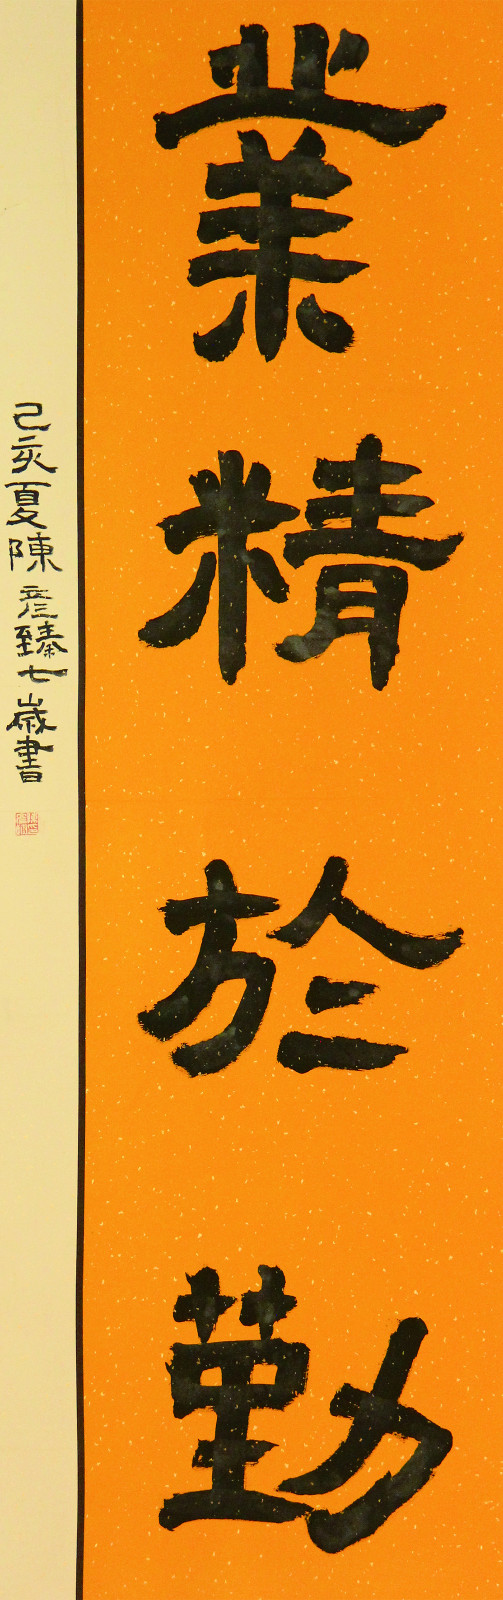 業精於勤
己亥夏陳彦臻七歲書